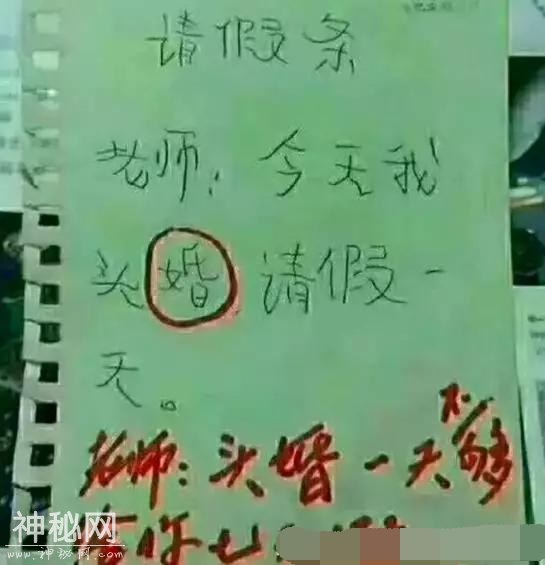 请假条
老师：今天我
头婚请假一
天。
老师：头婚一天不够
神秘网
www.神秘网.com